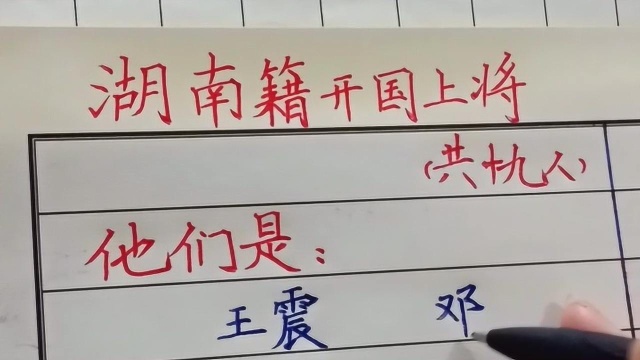 湖南籍开国上将
(共十九人)
他们是:
王震 邓